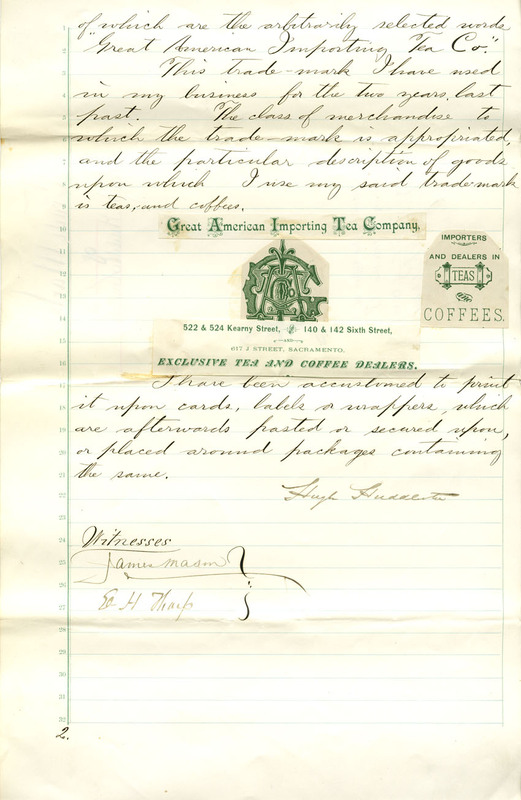 of which are the arbitrarily selected words
"Great American Importing Tea Co."
This trade-mark I have used
in my business for the two years last
past. The class of merchandise to
which the trade-mark is appropriated,
and the particular description of goods
upon which I use my said trade-mark
is teas, and coffees.
Great American Importing Tea Company,
522 & 524 Kearny Street, 140 & 142 Sixth Street,
AND
617 J STREET, SACRAMENTO.
EXCLUSIVE TEA AND COFFEE DEALERS.
IMPORTERS
AND DEALERS IN
TEAS
COFFEES.
I have been accustomed to print
it upon cards, labels or wrappers, which
are afterwards pasted or secured upon,
or placed around packages containing
the same.
Hugh
Witnesses
James Mason
E H Tharp
1
2
3
4
5
6
7
8
9
10
11
12
13
14
15
16
17
18
19
20
21
22
23
24
25
26
27
28
29
30
31
32
2.